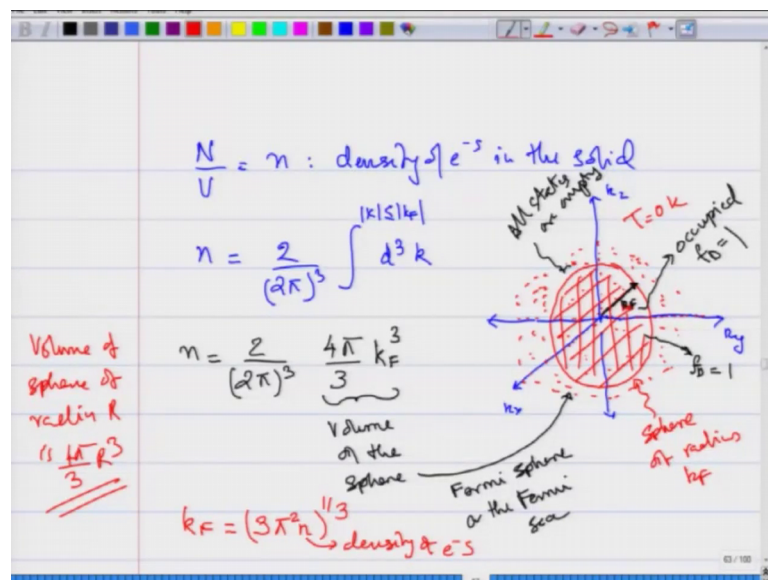 N/V = n : density of e⁻s in the solid
n = 2/(2π)³ ∫^{|k|≤|k_F|} d³k
n = 2/(2π)³ 4π/3 k_F³
Volume
of the
sphere
k_F = (3π²n)^{1/3}
density of e⁻s
Volume of
sphere of
radius R
is 4π/3 R³
All states
are empty
k_z
T=0K
occupied
f_D = 1
k_F
k_y
f_D = 1
k_x
sphere
of radius
k_F
Fermi sphere
or the Fermi
sea
63 / 100